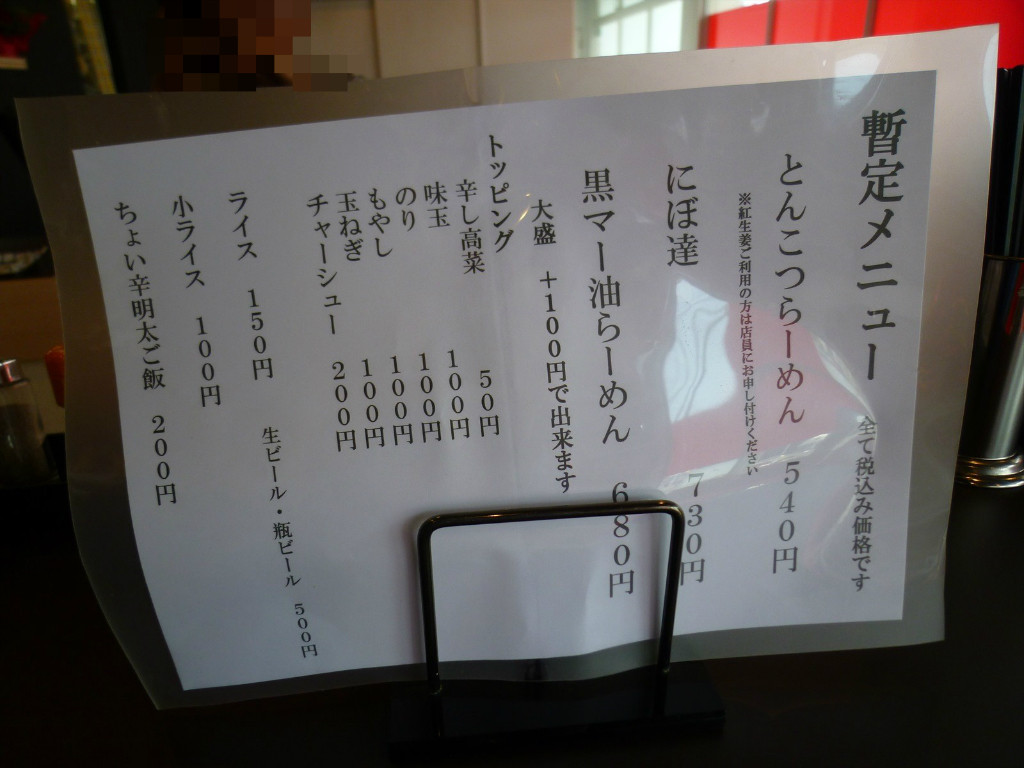 暫定メニュー 全て税込み価格です
とんこつらーめん 540円
※紅生姜ご利用の方は店員にお申し付けください
にぼ達 730円
黒マー油らーめん 680円
大盛 +100円で出来ます
トッピング
辛し高菜 50円
味玉 100円
のり 100円
もやし 100円
玉ねぎ 100円
チャーシュー 200円
ライス 150円
生ビール・瓶ビール 500円
小ライス 100円
ちょい辛明太ご飯 200円